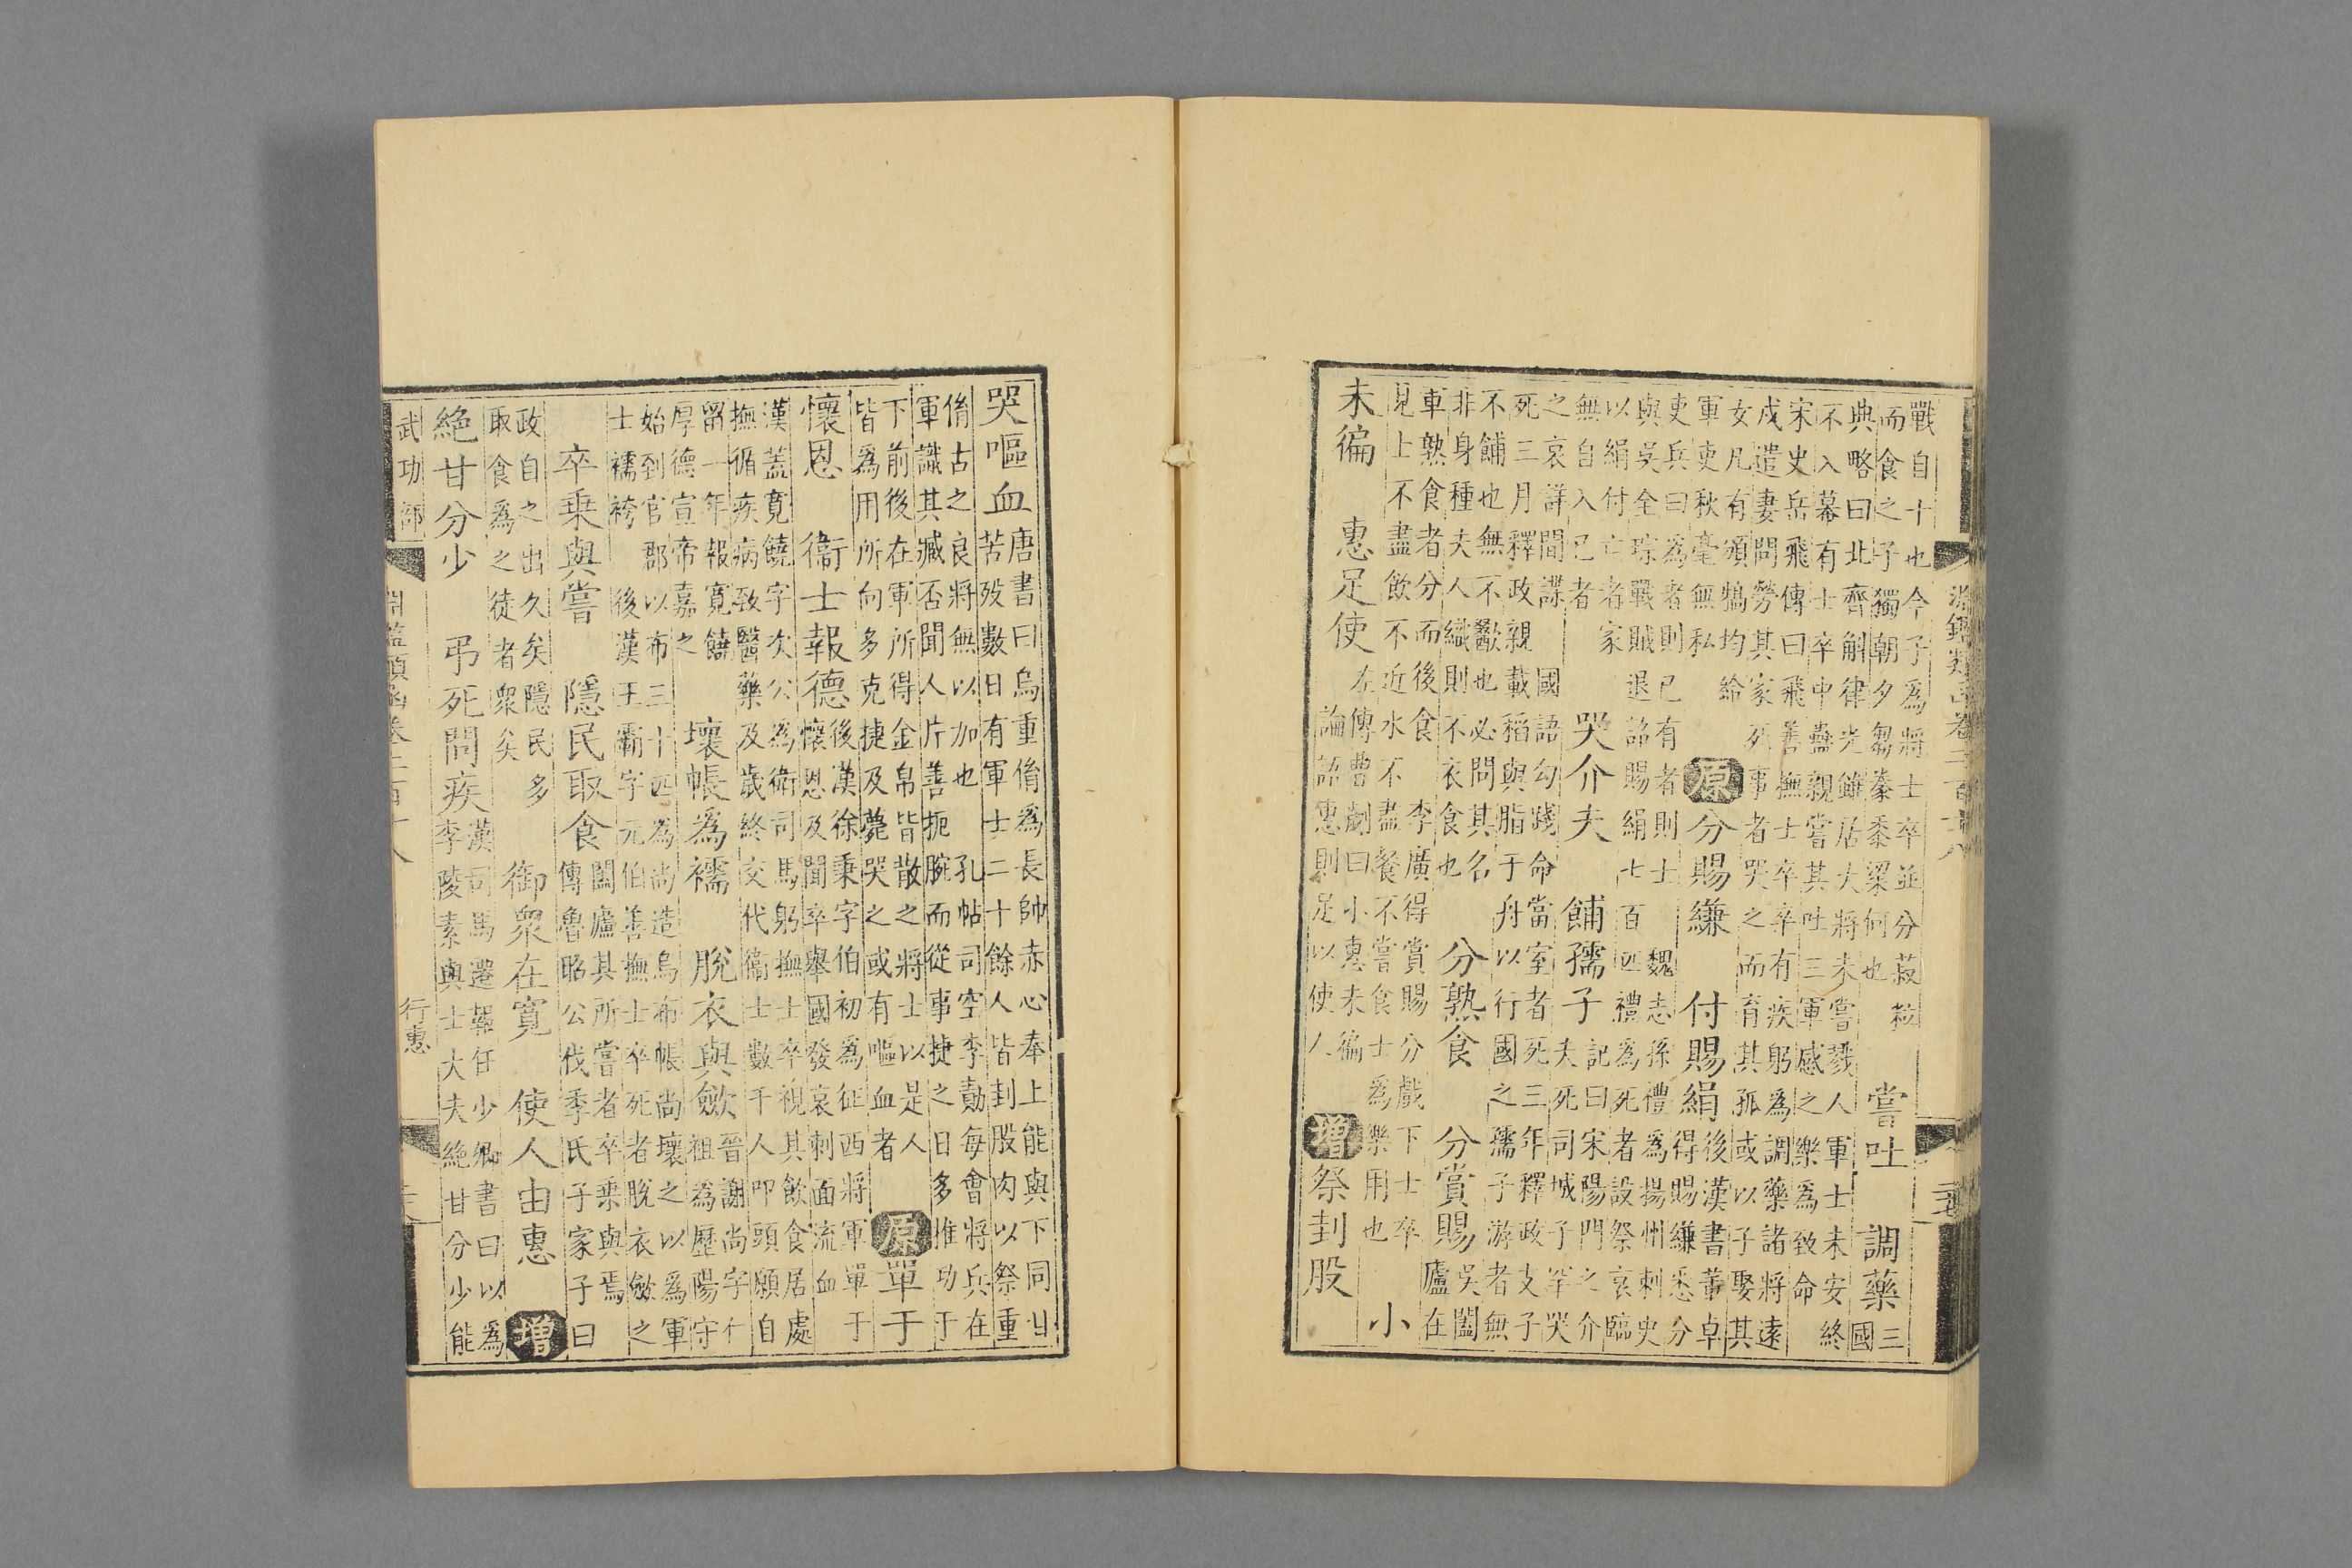 淵鑑類函卷二百十八
戰自十也今子為將士卒並分菽粒
而食之子獨朝夕芻豢黍粱何也
嘗吐 調藥
三
國
典略曰北齊斛律光雖居大將未嘗戮人軍士未安終
不入幕有士卒中蠱親嘗其吐三軍感之樂為致命
宋史岳飛傳曰飛善撫士卒卒有疾躬為調藥諸將遠
戍遣妻問勞其家死事者哭之而育其孤或以子娶其
女凡有頒犒均給
軍吏秋毫無私
原 分賜縑 付賜絹
後漢書董卓
得賜縑悉分
吏兵曰為者則已有者則士 魏志孫禮為揚州刺史
與吳全琮戰賊退詔賜絹七百匹禮為死者設祭哀臨
以絹付亡者家
無自入已者
哭介夫 餔孺子
記曰宋陽門之介
夫死司城子罕哭
之哀詳聞諜 國語勾踐命當室者死三年釋政支子
死三月釋政親載稻與脂于舟以行國之孺子游者無
不餔也無不歠也必問其名
非身種夫人織則不衣食也
分熟食 分賞賜
吳闔
廬在
車熟食者分而後食 李廣得賞賜分戲下士卒
見上不盡飲不近水不盡餐不嘗食士為樂用也
小
未徧 惠足使
左傳曹劌曰小惠未徧
論語惠則足以使人
增 祭刲股
哭嘔血
唐書曰烏重胤為長帥赤心奉上能與下同甘
苦歿數日有軍士二十餘人皆刲股肉以祭重
胤古之良將無以加也 孔帖司空李勣每會將兵在
軍識其臧否聞人片善扼腕而從事捷之日多惟功于
下前後在軍所得金帛皆散之將士以是人
皆爲用所向多克捷及薨哭之或有嘔血者
原 單于
懷恩 衞士報德
後漢徐秉字伯初為征西將軍單于
懷恩及聞卒舉國發哀刺面流血
漢蓋寛饒字次公為衛司馬躬撫士卒視其飲食居處
撫循疾病致醫藥及歲終交代衞士數千人叩頭願自
留一年報寛饒
厚德宣帝嘉之
壞帳為襦 脫衣與歛
晉謝尚字仁
祖為歷陽守
始到官郡以布三十匹為尚造烏布帳尚壞之以為軍
士襦袴 後漢王霸字元伯善撫士卒死者脫衣歛之
卒乗與嘗 隱民取食
闔廬其所嘗者卒乗與焉
傳魯昭公伐季氏子家子曰
政自之出久矣隱民多
取食爲之徒者衆矣
御衆在寛 使人由惠 增
絶甘分少 弔死問疾
漢司馬遷報任少卿書曰以為
李陵素與士大夫絶甘分少能
武功部 淵鑑類函卷二百十八 行惠